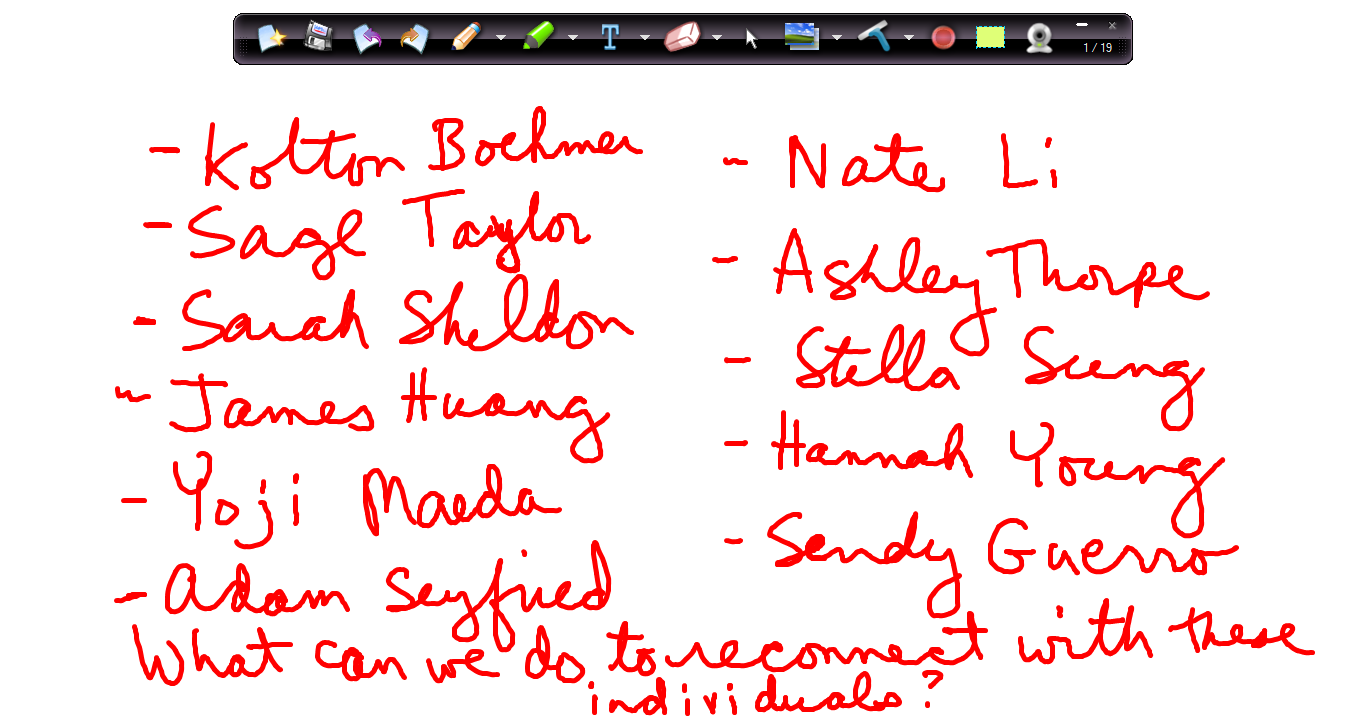 1 / 19
- Kolton Boehmer
- Sage Taylor
- Sarah Sheldon
- James Huang
- Yoji Maeda
- Adam Seyfried
- Nate Li
- Ashley Thorpe
- Stella Sung
- Hannah Young
- Sendy Guerro
What can we do to reconnect with these
individuals?